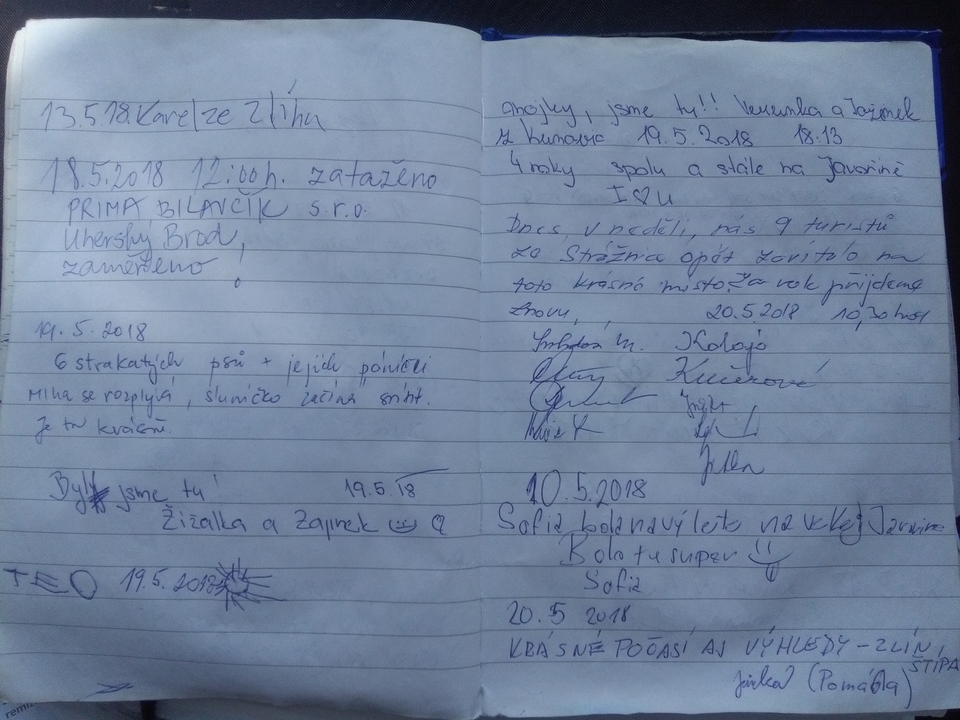 13.5.18. Karel ze Zlína
18.5.2018 12:00h. zataženo
PRIMA BILAVČÍK s.r.o.
Uherský Brod,
zaměřeno!
19. 5. 2018
6 strakatých psů + jejich páníčci
Mlha se rozplývá, sluníčko začíná svítit.
Je tu krásně.
Byly jsme tu! 19.5.18
Žížalka a Zajínek
TEO 19.5.2018
ahojky, jsme tu!! Verunka a Toženek
z Kunovic 19.5.2018 18:13
4 roky spolu a stále na Javořině
I ♡ u
Dnes, v neděli, nás 9 turistů
ze Strážnice opět zavítalo na
toto krásné místo. Za rok přijdeme
znovu, 20.5.2018 10,30 hod
Kučerová
10.5.2018
Sofia bola na výlete na veľkej Javorine
Bolo tu super
Sofia
20.5 2018
KRÁSNÉ POČASÍ AJ VÝHLEDY - ZLÍN,
ŠTÍPA
Jirka (Pomába)